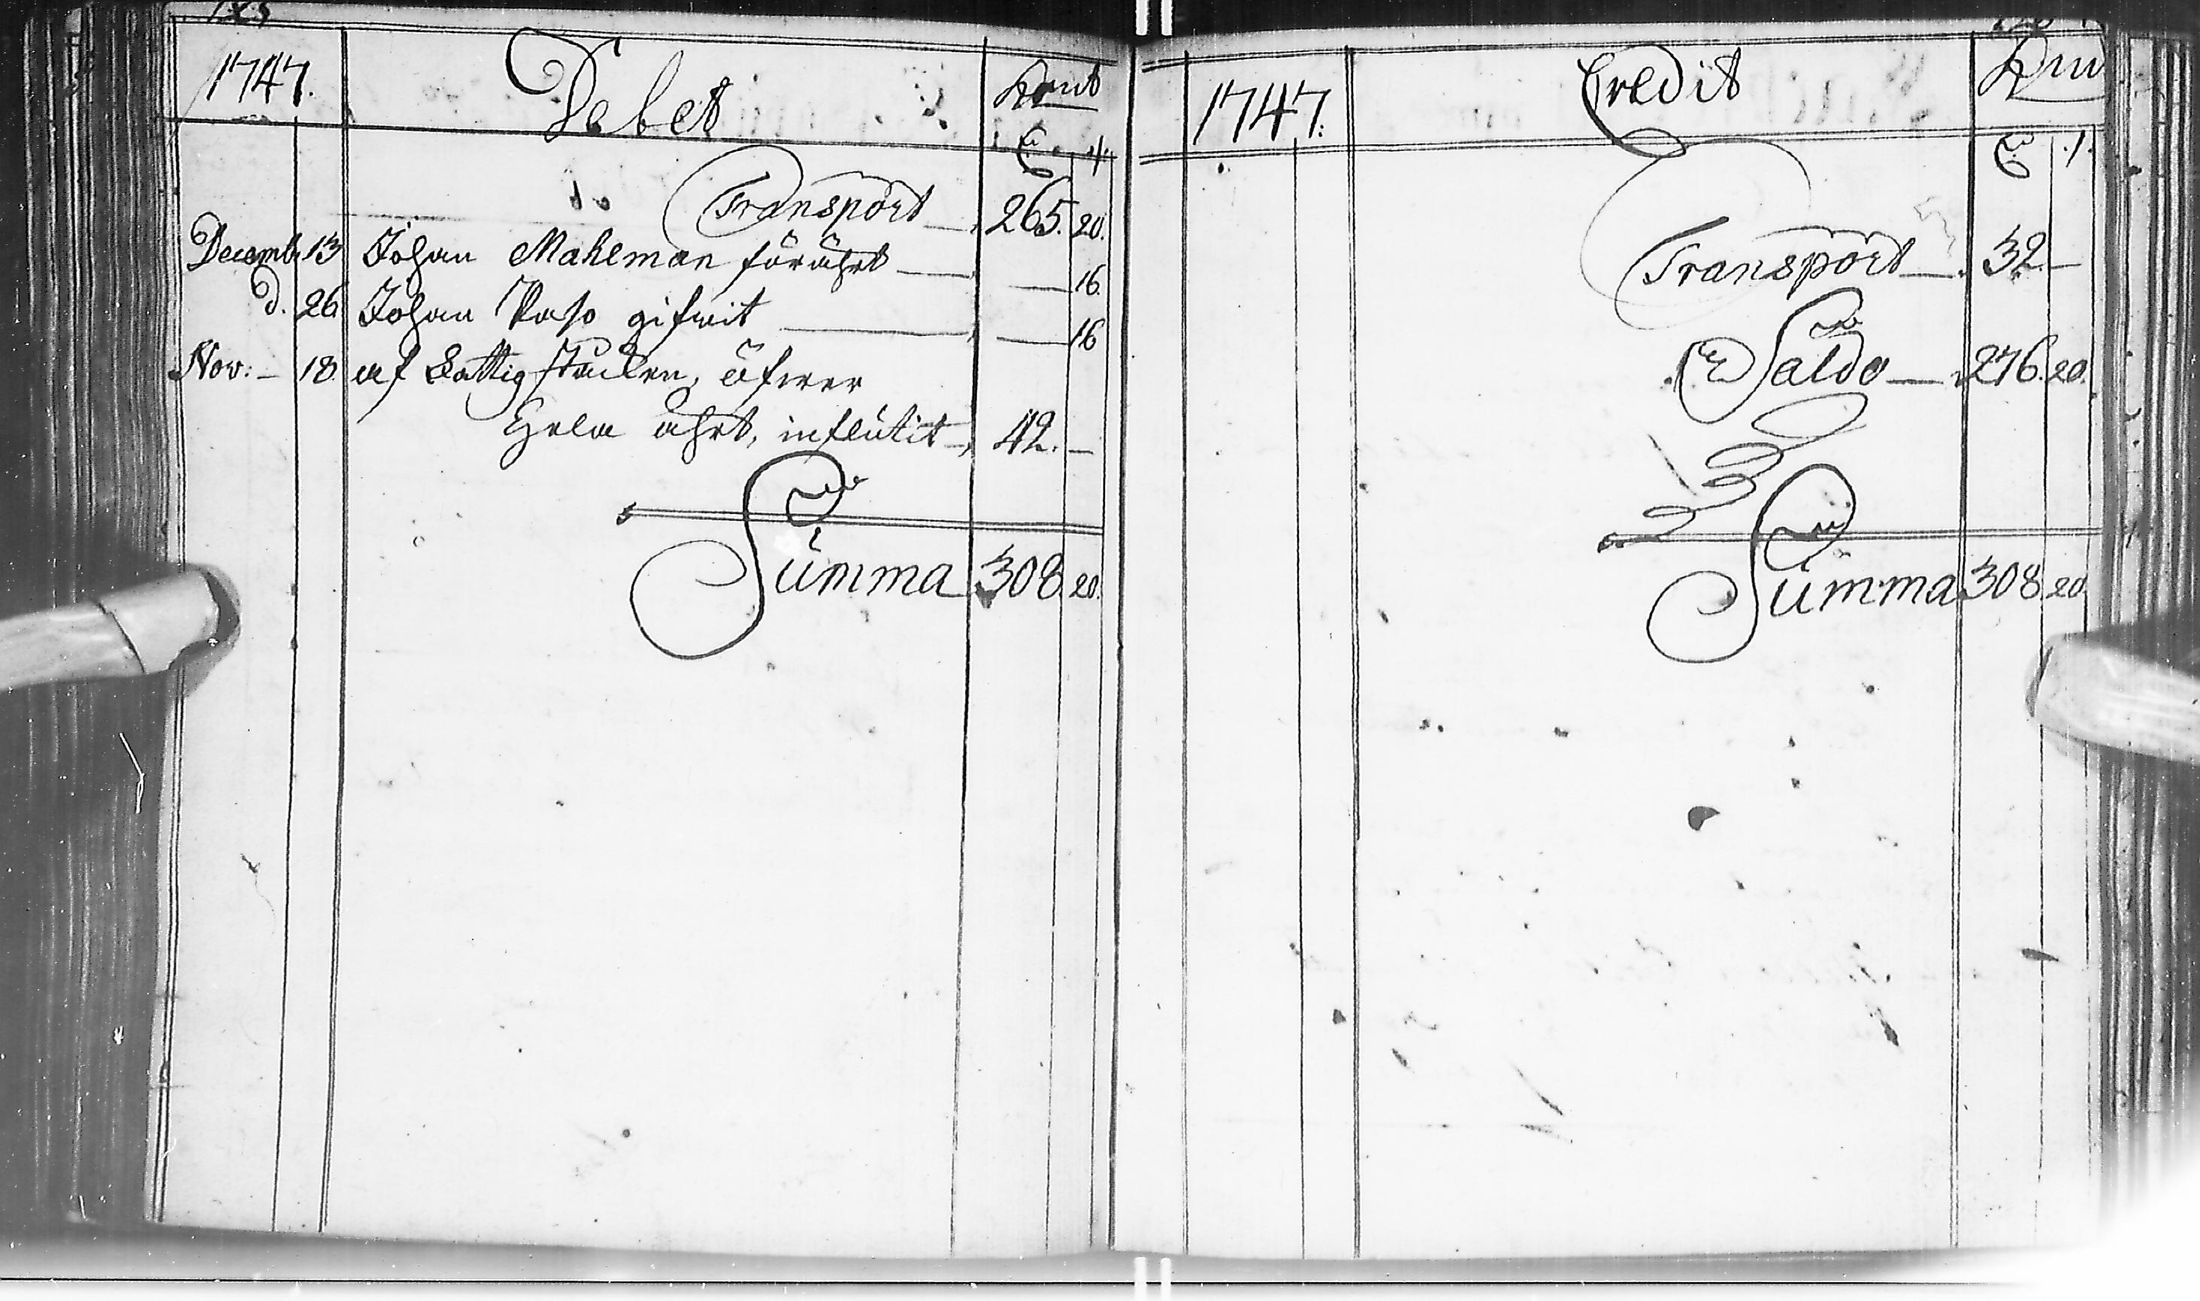 1747. Debet Kmt
Transport 265. 20.
Decemb. 13 Johan Makeman förährt — 16.
d. 26 Johan Paso gifwit — 16
Nov: — 18. af Fattig stäcken, öfwer
hela åhret, influtit 42. —
Summa 308. 20.
1747. Credit
Transport 32. —
Saldo 276. 20.
Summa 308. 20.